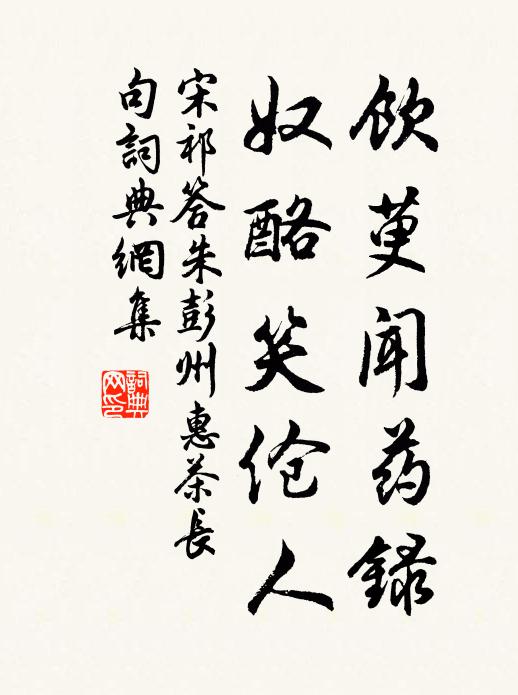 飲萸聞药録
奴酪笑伧人
宋祁答朱彭州惠茶長
句詞典網集
詞典
网印